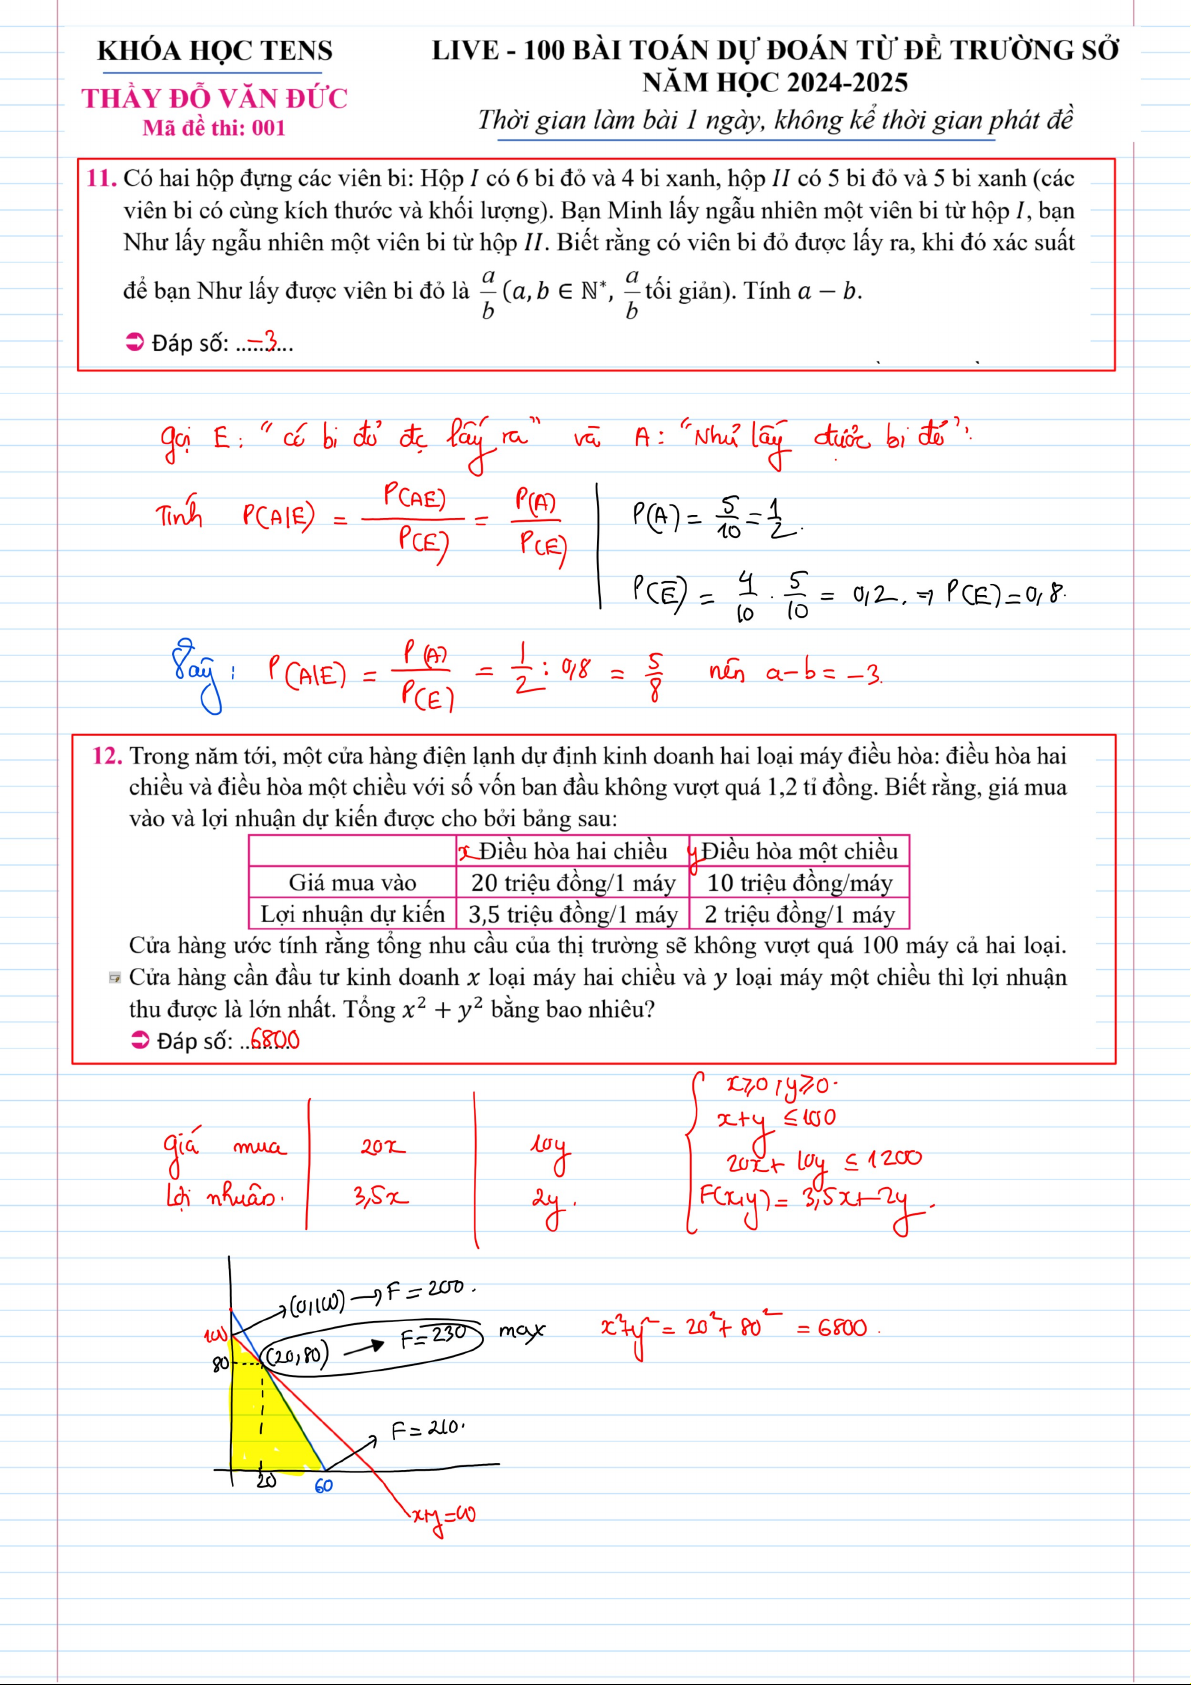 KHÓA HỌC TENS
THẦY ĐỖ VĂN ĐỨC
Mã đề thi: 001
LIVE - 100 BÀI TOÁN DỰ ĐOÁN TỪ ĐỀ TRƯỜNG SỞ
NĂM HỌC 2024-2025
Thời gian làm bài 1 ngày, không kể thời gian phát đề
11. Có hai hộp đựng các viên bi: Hộp I có 6 bi đỏ và 4 bi xanh, hộp II có 5 bi đỏ và 5 bi xanh (các
viên bi có cùng kích thước và khối lượng). Bạn Minh lấy ngẫu nhiên một viên bi từ hộp I, bạn
Như lấy ngẫu nhiên một viên bi từ hộp II. Biết rằng có viên bi đỏ được lấy ra, khi đó xác suất
để bạn Như lấy được viên bi đỏ là a/b (a, b ∈ ℕ*, a/b tối giản). Tính a − b.
Đáp số: ..−3...
gọi E: "có bi đỏ đc lấy ra" và A: "Như lấy được bi đỏ".
Tính P(A|E) = P(AE)/P(E) = P(A)/P(E)
P(A) = 5/10 = 1/2.
P(Ē) = 4/10 . 5/10 = 0,2. ⇒ P(E) = 0,8.
Vậy: P(A|E) = P(A)/P(E) = 1/2 : 0,8 = 5/8 nên a−b = −3.
12. Trong năm tới, một cửa hàng điện lạnh dự định kinh doanh hai loại máy điều hòa: điều hòa hai
chiều và điều hòa một chiều với số vốn ban đầu không vượt quá 1,2 tỉ đồng. Biết rằng, giá mua
vào và lợi nhuận dự kiến được cho bởi bảng sau:
x Điều hòa hai chiều y Điều hòa một chiều
Giá mua vào 20 triệu đồng/1 máy 10 triệu đồng/máy
Lợi nhuận dự kiến 3,5 triệu đồng/1 máy 2 triệu đồng/1 máy
Cửa hàng ước tính rằng tổng nhu cầu của thị trường sẽ không vượt quá 100 máy cả hai loại.
Cửa hàng cần đầu tư kinh doanh x loại máy hai chiều và y loại máy một chiều thì lợi nhuận
thu được là lớn nhất. Tổng x² + y² bằng bao nhiêu?
Đáp số: ..6800
giá mua 20x 10y
Lợi nhuận. 3,5x 2y.
x≥0; y≥0.
x+y ≤ 100
20x + 10y ≤ 1200
F(x,y) = 3,5x+2y.
(0,100) → F = 200.
100
80
(20,80) → F = 230 max
x²+y² = 20²+80² = 6800.
F = 210.
20
60
x+y=100